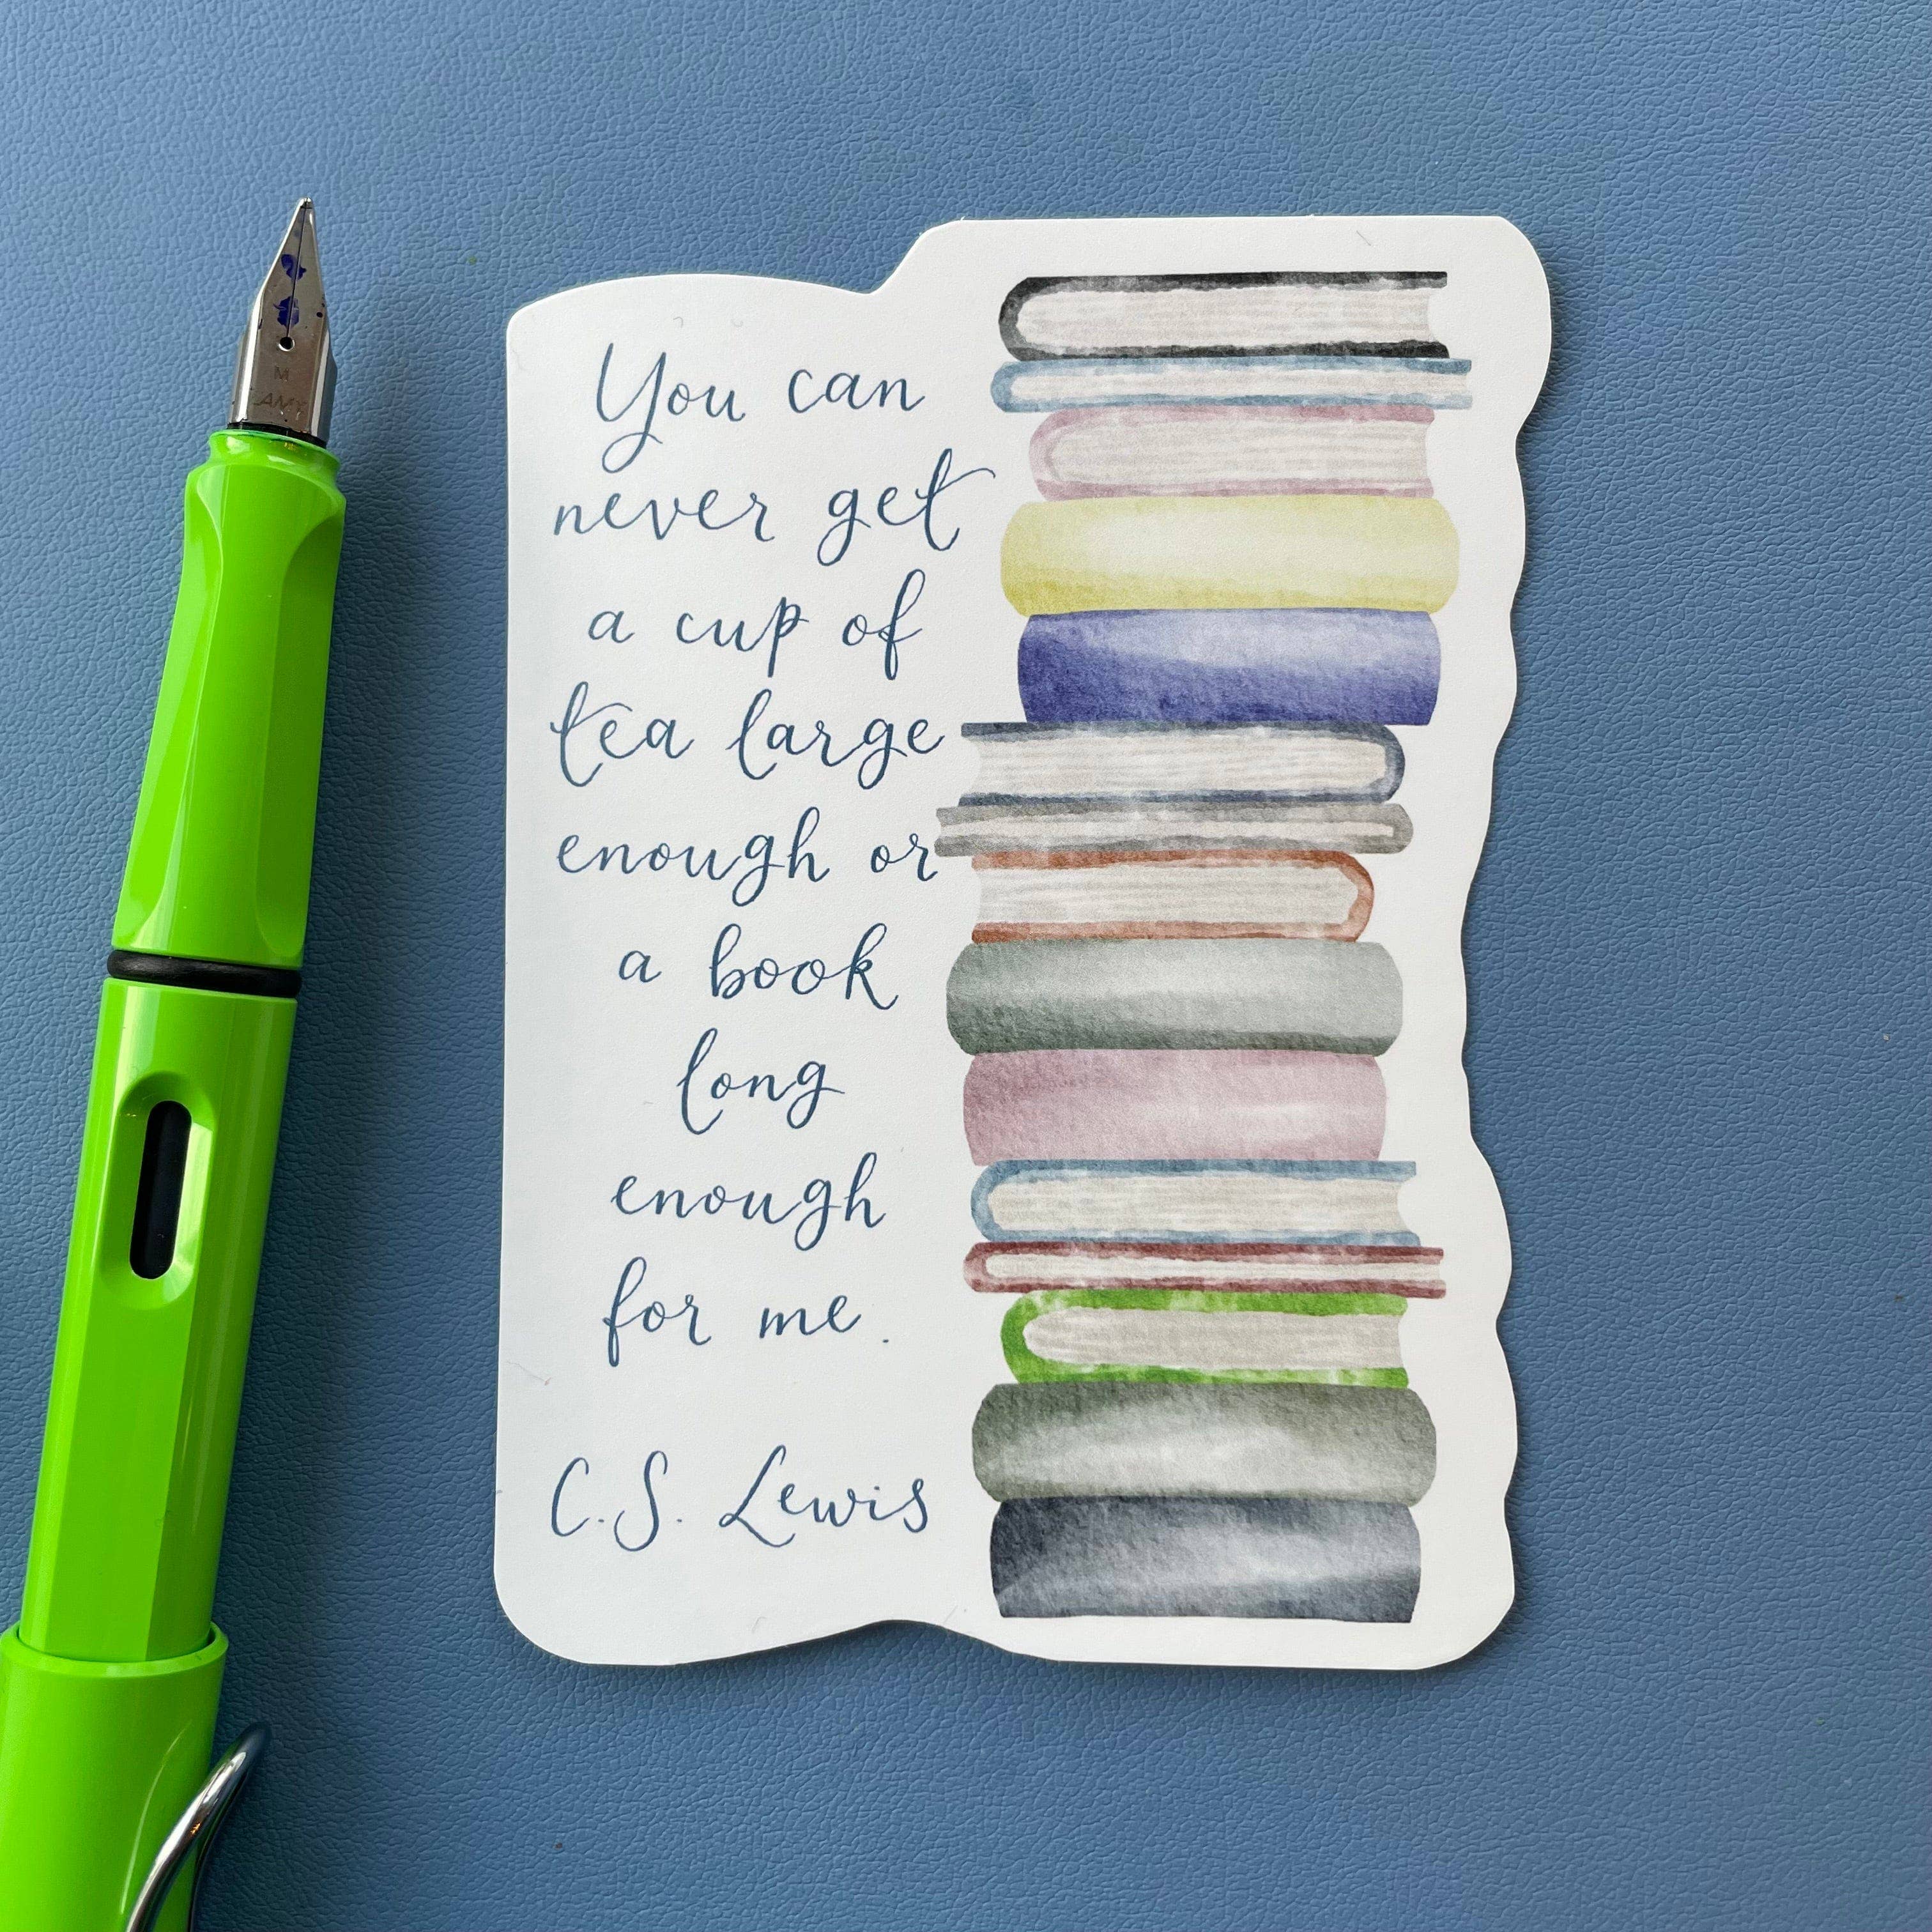 M
LAMY
You can
never get
a cup of
tea large
enough or
a book
long
enough
for me.
C.S. Lewis